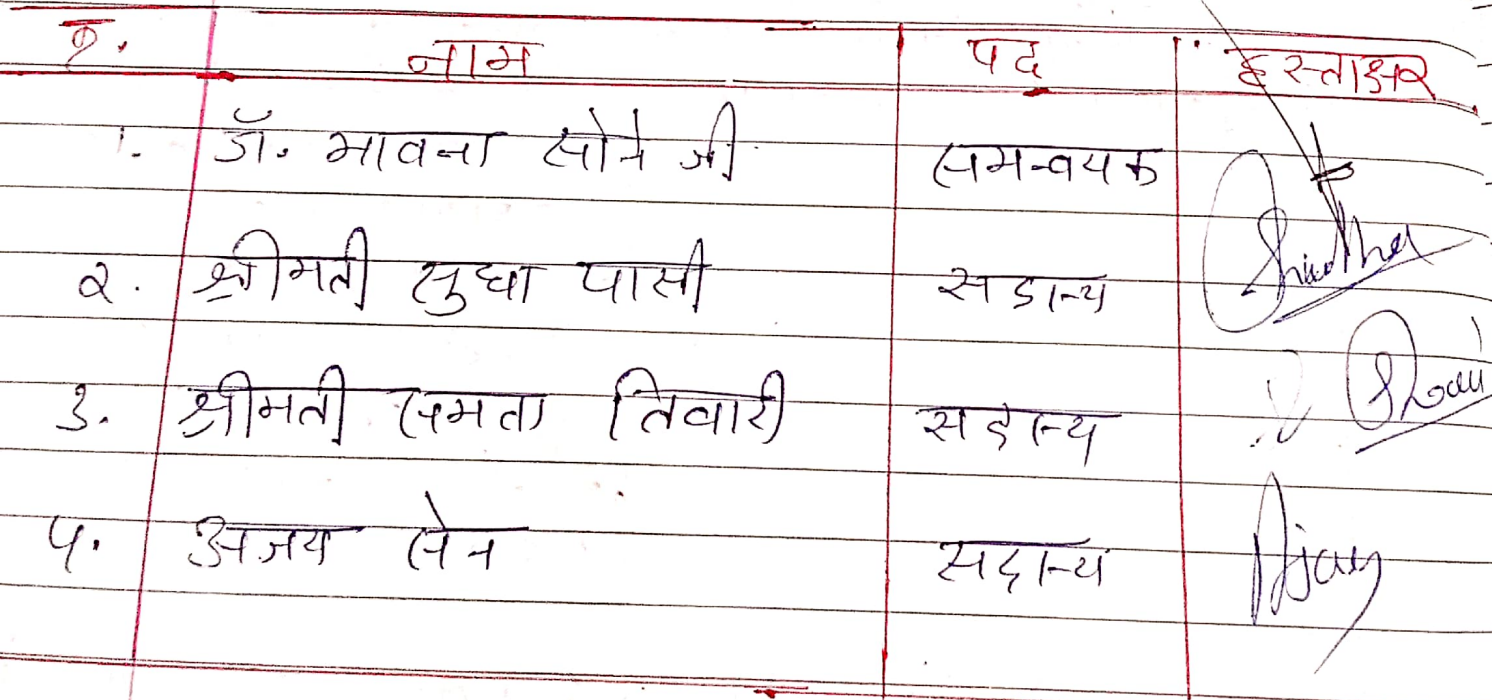 क्र. नाम पद हस्ताक्षर
1. डॉ. भावना सोनेजी समन्वयक
२. श्रीमती सुधा पासी सदस्य Sudha
3. श्रीमती समता तिवारी सदस्य
4. अजय सेन सदस्य Ajay